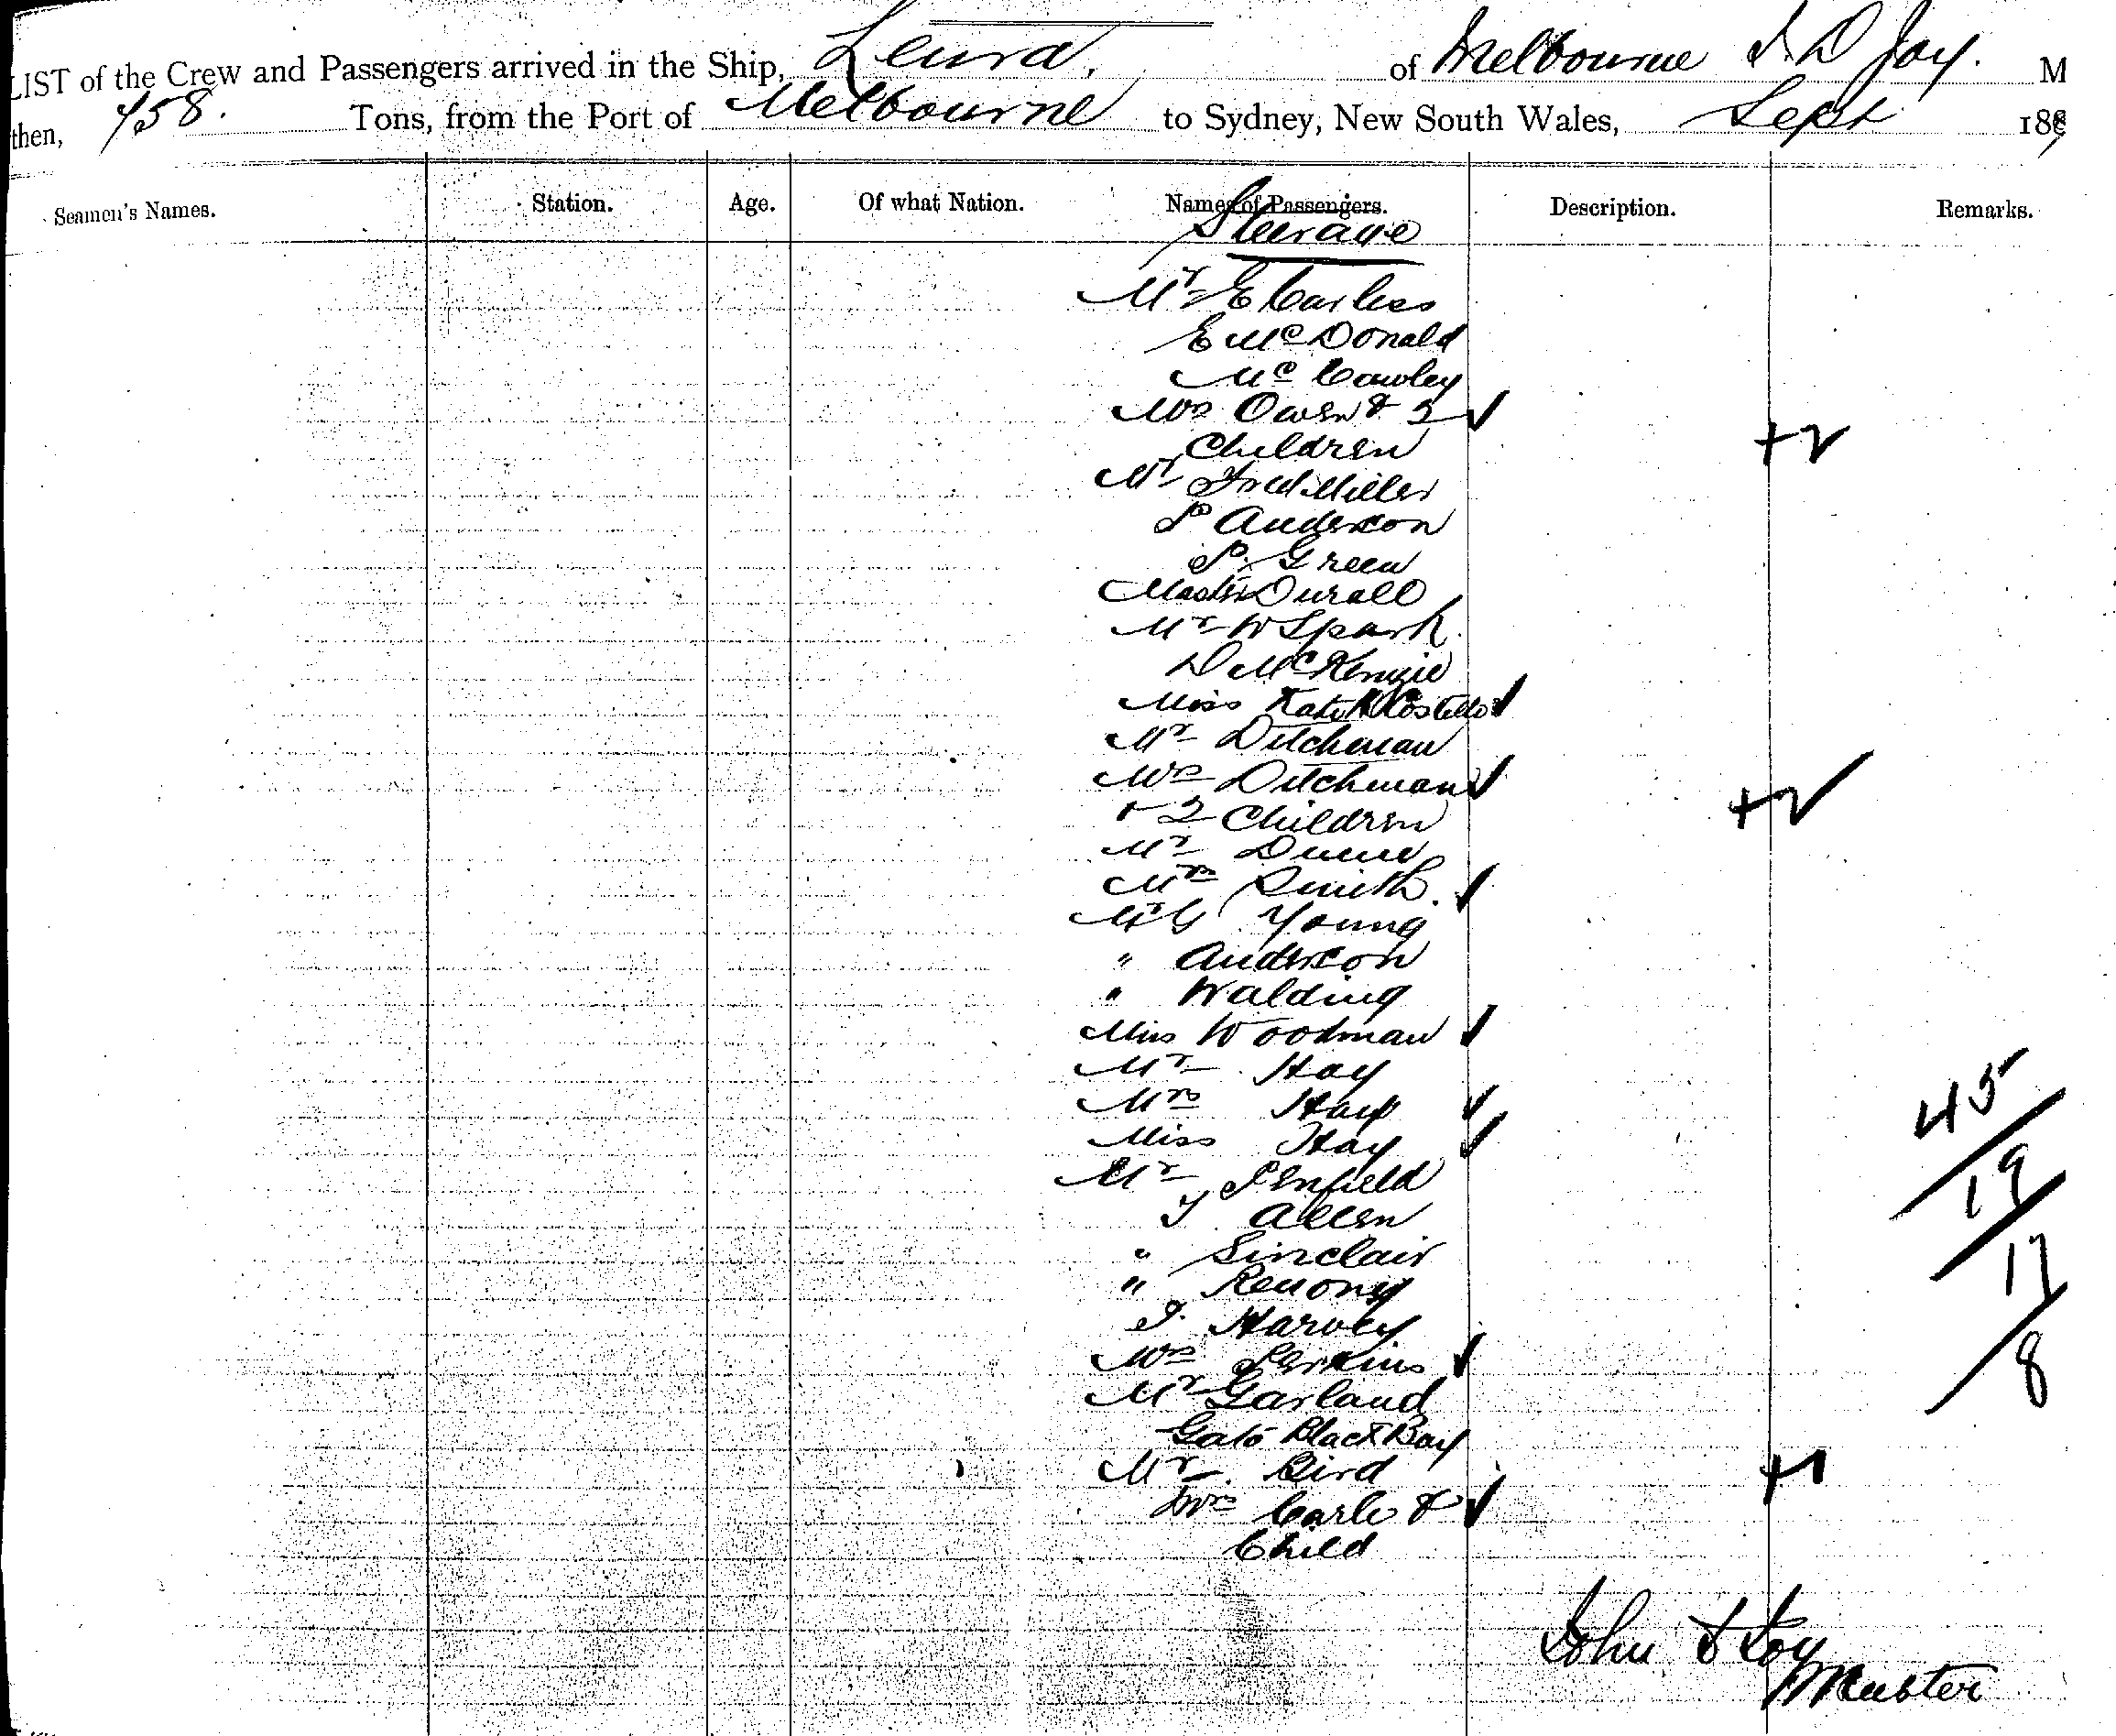 LIST of the Crew and Passengers arrived in the Ship, Leura, of Melbourne J. D Joy. M
then, 458. Tons, from the Port of Melbourne to Sydney, New South Wales, Sept 188
Seamen's Names. Station. Age. Of what Nation. Names of Passengers. Description. Remarks.
Steerage
Mr E Carless
E McDonald
Mc Cawley
Mrs Owen & 2
Children +2
Mr Fred Miller
P Anderson
P. Green
Master Durall
Mr W Spark
D McKenzie
Miss Kate Costello
Mr Ditchman
Mrs Ditchman
+ 2 Children +2
Mr Dunne
Mrs Smith.
Mr G Young
" Anderson
" Walding
Miss Woodman
Mr Hay
Mrs Hay
Miss Hay
45
Mr Penfield
19
T Allen
" Sinclair
17
"
J. Harvey
Mrs Perkins
8
Mr Garland
Gato Black Boy
Mr Bird +1
Mrs Carle &
Child
John Joy
Master